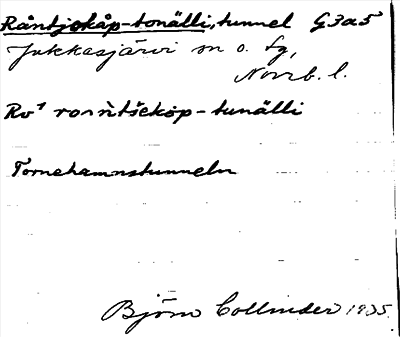 Råntjokåp-tonälli, tunnel G3a5
Jukkasjärvi sn o. fg,
Norrb. l.
Rv¹ ronǹtšekop-tunälli
Tornehamnstunneln
Björn Collinder 1935.